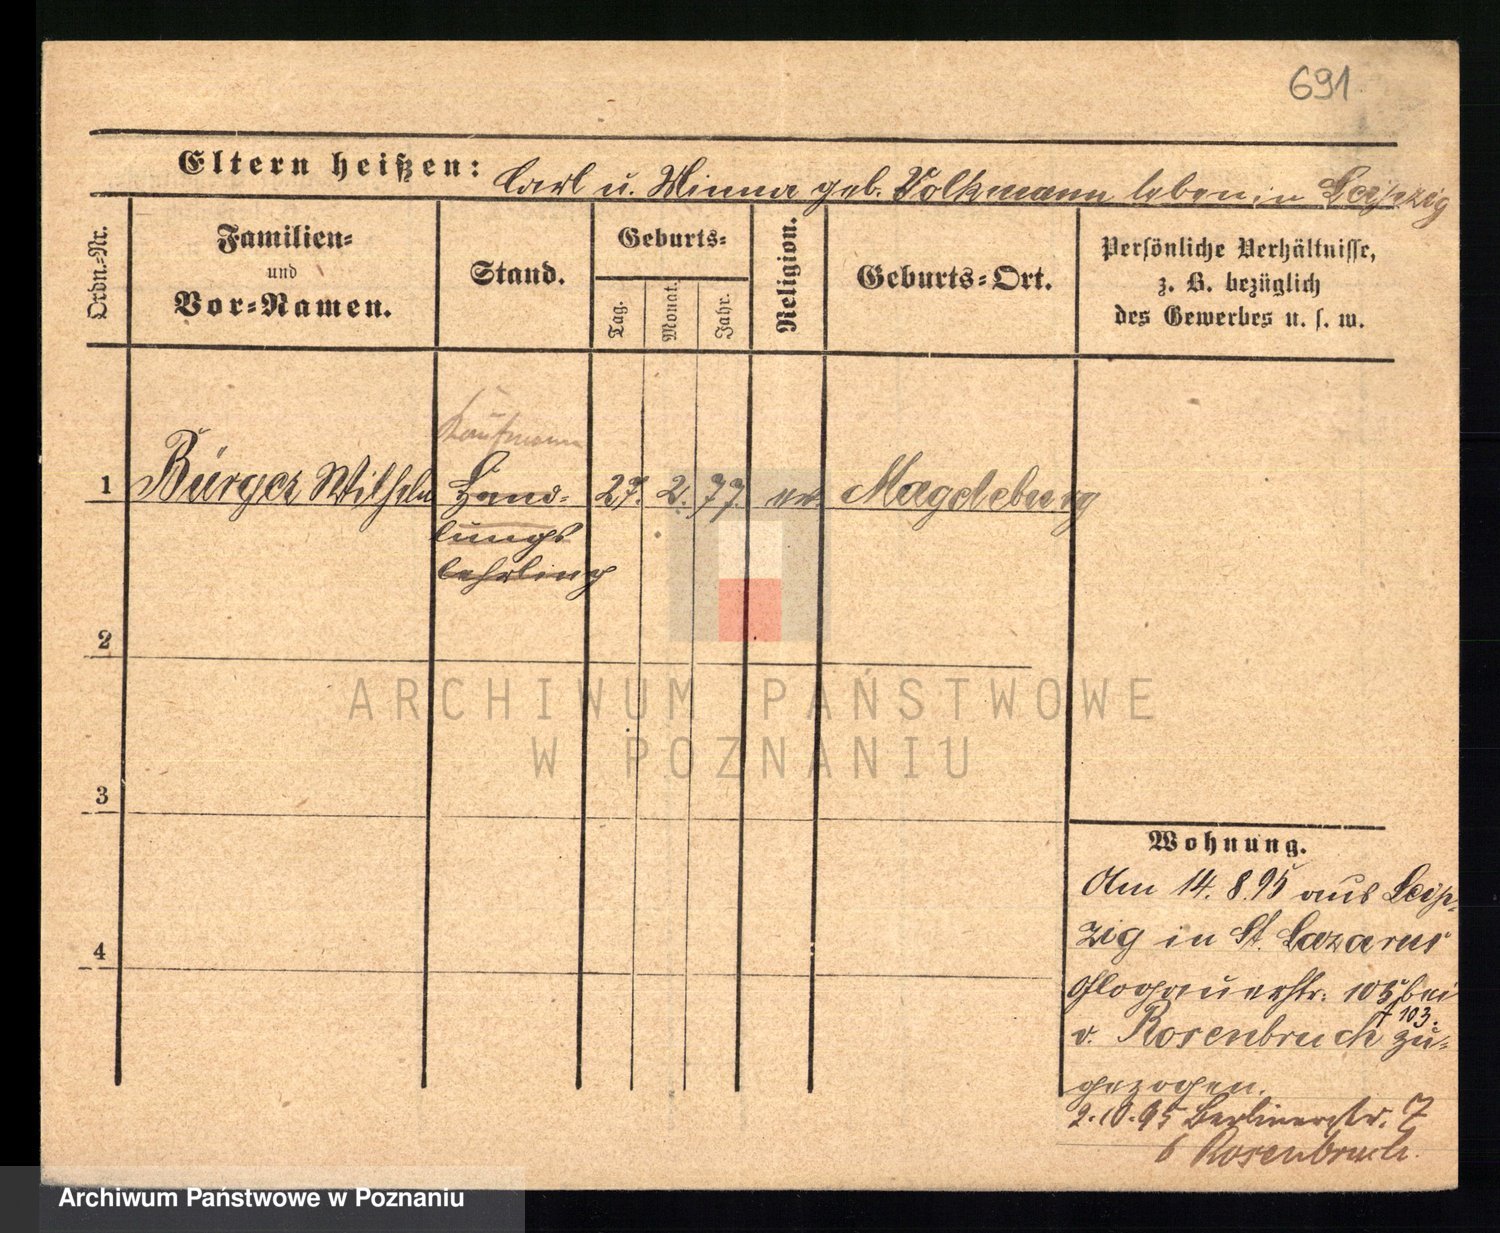 691
Eltern heißen: Carl u. Minna geb. Volkmann leben in Leipzig
Ordn.-Nr.
Familien-
und
Vor-Namen.
Stand.
Geburts-
Tag.
Monat.
Jahr.
Religion.
Geburts-Ort.
Persönliche Verhältnisse,
z. B. bezüglich
des Gewerbes u. s. w.
Kaufmann
1 Bürger Wilhelm Hand- 27. 2. 77. ev. Magdeburg
lungs
lehrling
2
ARCHIWUM PAŃSTWOWE
W POZNANIU
3
Wohnung.
Am 14. 8. 95 aus Leip-
zig in St. Lazarus
4
Glogauerstr. 105 bei
103.
v. Rosenbruch zu-
gezogen.
2.10.95 Berlinerstr. 7
b Rosenbruch.
Archiwum Państwowe w Poznaniu